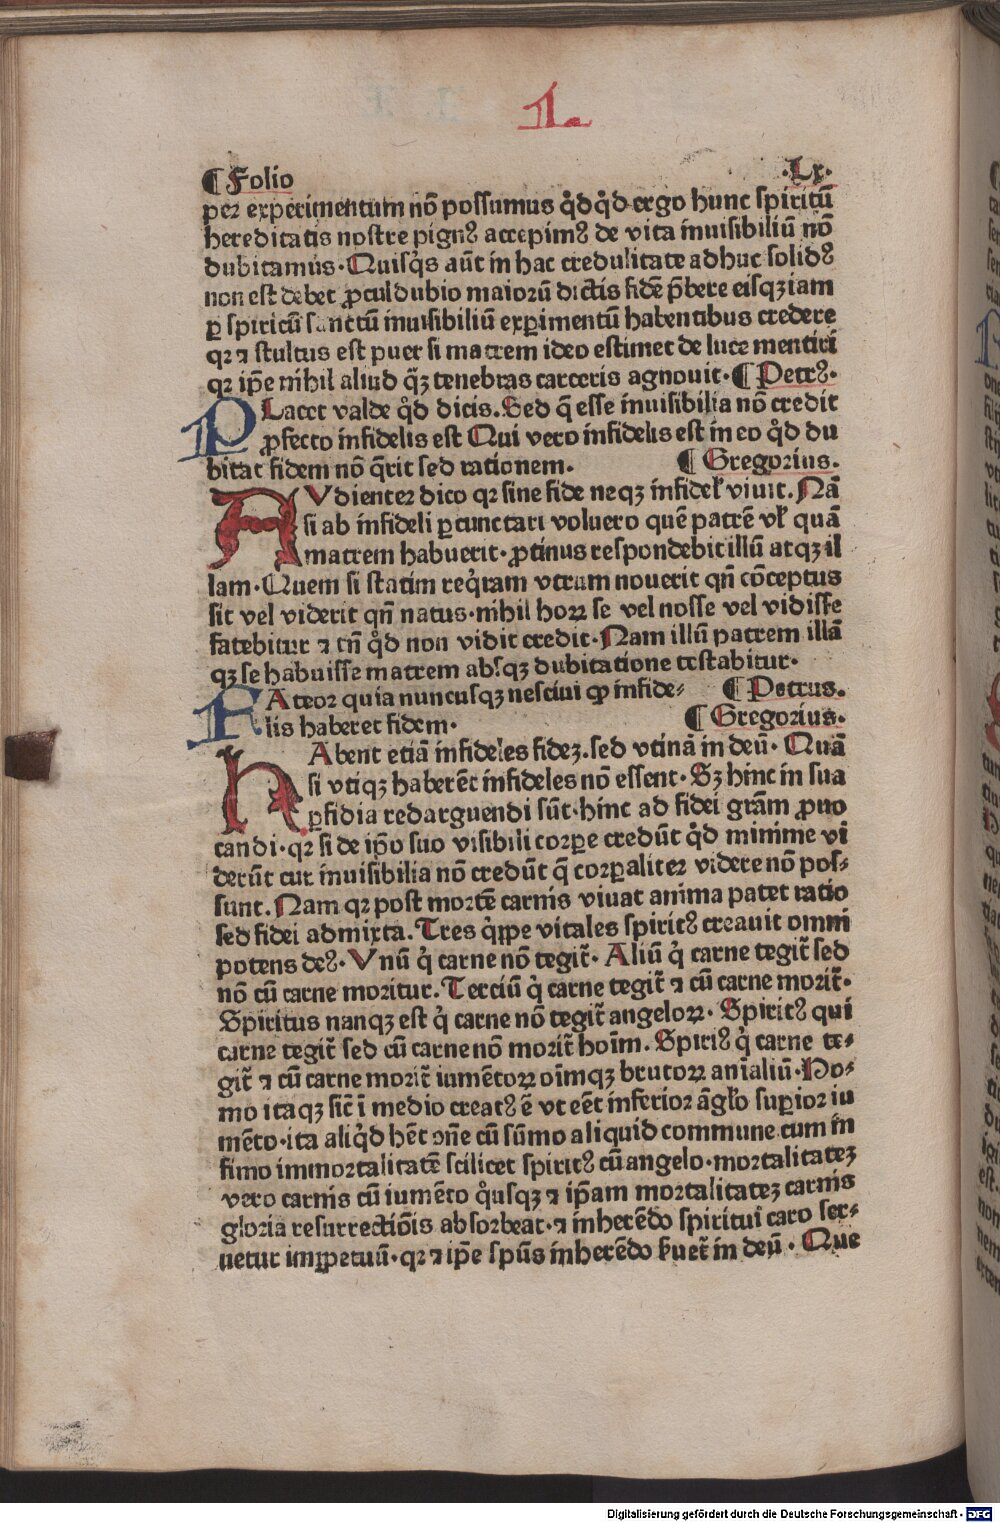 1.
¶ Folio .Lx.
per experimentum nō possumus q̇dq̇d ergo hunc spiritū
hereditatis nostre pignꝰ accepimꝰ de vita inuisibiliū nō
dubitamus. Quisq̇s aūt in hac credulitate adhuc solidꝰ
non est debet ꝓculdubio maiorū dictis fidē p̄bere eisqꝫ iam
ꝑ spiritū sanctū inuisibiliū exꝑimentū habentibus credere
qꝛ ⁊ stultus est puer si matrem ideo estimet de luce mentiri
qꝛ ip̄e nihil aliud q̄ꝫ tenebras carceris agnouit. ¶ Petrꝰ.
PLacet valde q̇d dicis. Sed q̄ esse inuisibilia nō credit
ꝓfecto infidelis est Qui vero infidelis est in eo q̇d du
bitat fidem nō q̄rit sed rationem. ¶ Gregorius.
AVdienter dico qꝛ sine fide neqꝫ infidel̕ viuit. Nā
si ab infideli ꝑcunctari voluero quē patrē vl̕ quā
matrem habuerit. ꝓtinus respondebit illū atqꝫ il
lam. Quem si statim req̇ram vtrum nouerit qn̄ cōceptus
sit vel viderit qn̄ natus. nihil hoꝝ se vel nosse vel vidisse
fatebitur ⁊ tn̄ q̇d non vidit credit. Nam illū patrem illā
qꝫ se habuisse matrem absqꝫ dubitatione testabitur.
FAteor quia nuncusqꝫ nesciui ꝙ infide⸗ ¶ Petrus.
lis haberet fidem. ¶ Gregorius.
hAbent etiā infideles fideꝫ. sed vtinā in deū. Quā
si vtiqꝫ haberēt infideles nō essent. Sꝫ hinc in sua
ꝑfidia redarguendi sūt. hinc ad fidei grām ꝓuo
candi. qꝛ si de ip̄o suo visibili corꝑe credūt q̇d minime vi
derūt cur inuisibilia nō credūt q̄ corꝑaliter videre nō pos⸗
sunt. Nam qꝛ post mortē carnis viuat anima patet ratio
sed fidei admixta. Tres q̇ꝓpe vitales spiritꝰ creauit omni
potens deꝰ. Vnū q̇ carne nō tegit̄. Aliū q̇ carne tegit̄ sed
nō cū carne moritur. Terciū q̇ carne tegit̄ ⁊ cū carne morit̄.
Spiritus nanqꝫ est q̇ carne nō tegit̄ angeloꝝ. Spiritꝰ qui
carne tegit̄ sed cū carne nō morit̄ hoīm. Spiriꝰ q̇ carne te⸗
git̄ ⁊ cū carne morit̄ iumētoꝝ oīmqꝫ brutoꝝ anīaliū. Ho⸗
mo itaqꝫ sic̄ ī medio creatꝰ ē vt eēt inferior āgl̕o suꝑior iu
mēto. ita aliq̇d hēt cōe cū sūmo aliquid commune cum in
fimo immortalitatē scilicet spiritꝰ cū angelo. mortalitateꝫ
vero carnis cū iumēto q̇usqꝫ ⁊ ip̄am mortalitateꝫ carnis
gloria resurrectiōis absorbeat. ⁊ inherēdo spiritui caro ser⸗
uetur inꝑpetuū. qꝛ ⁊ ip̄e spūs inherēdo ẜuet̄ in deū. Que
Digitalisierung gefördert durch die Deutsche Forschungsgemeinschaft - DFG